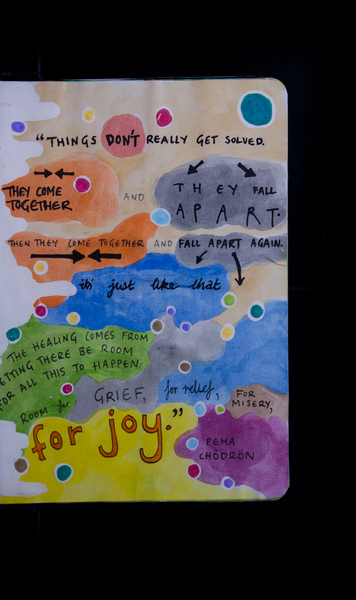 "THINGS DON'T REALLY GET SOLVED.
THEY COME TOGETHER AND THEY FALL APART.
THEN THEY COME TOGETHER AND FALL APART AGAIN.
it's just like that
THE HEALING COMES FROM
LETTING THERE BE ROOM
FOR ALL THIS TO HAPPEN.
ROOM for GRIEF, for relief, FOR MISERY,
for joy."
PEMA
CHÖDRÖN